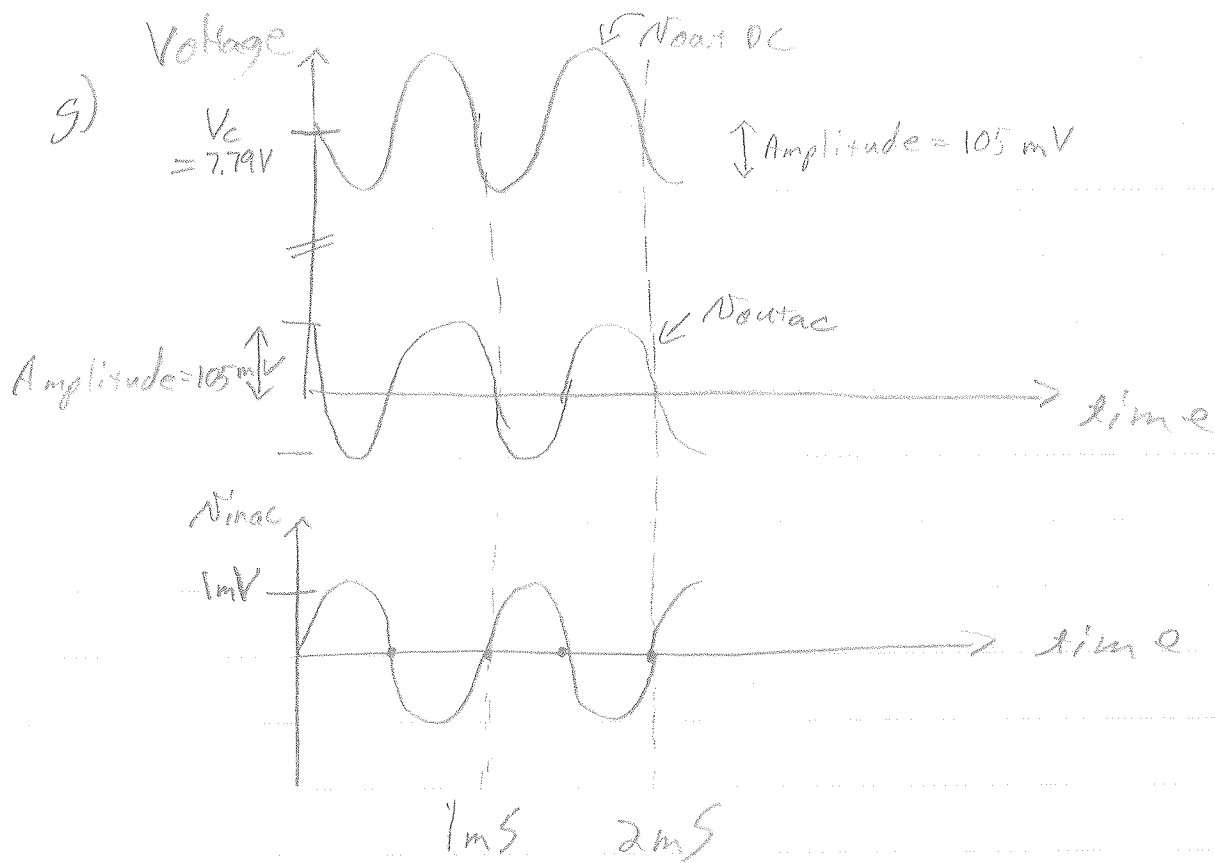 Voltage
Vout DC
g)
Vc
= 7.79V
Amplitude = 105 mV
Voutac
Amplitude = 105 mV
time
Vinac
1mV
time
1mS
2mS